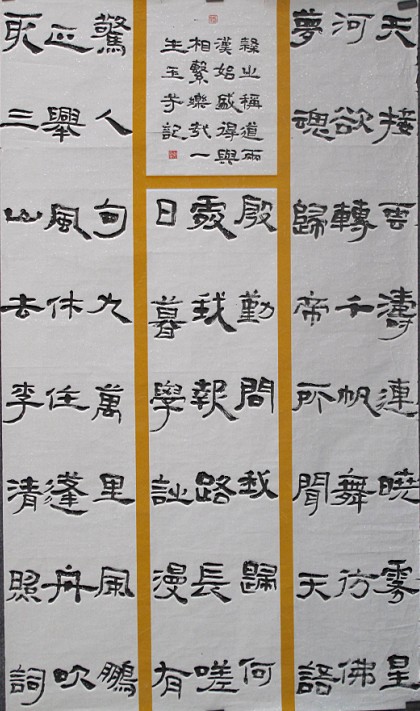 天接雲濤連曉霧星
河欲轉千帆舞彷佛
夢魂歸帝所聞天語
殷勤問我歸何
處我報路長嗟
日暮學詩漫有
驚人句九萬里風鵬
正舉風休住蓬舟吹
取三山去李清照詞
隸之稱道兩
漢始盛得與
相繫樂哉一
生玉芳記